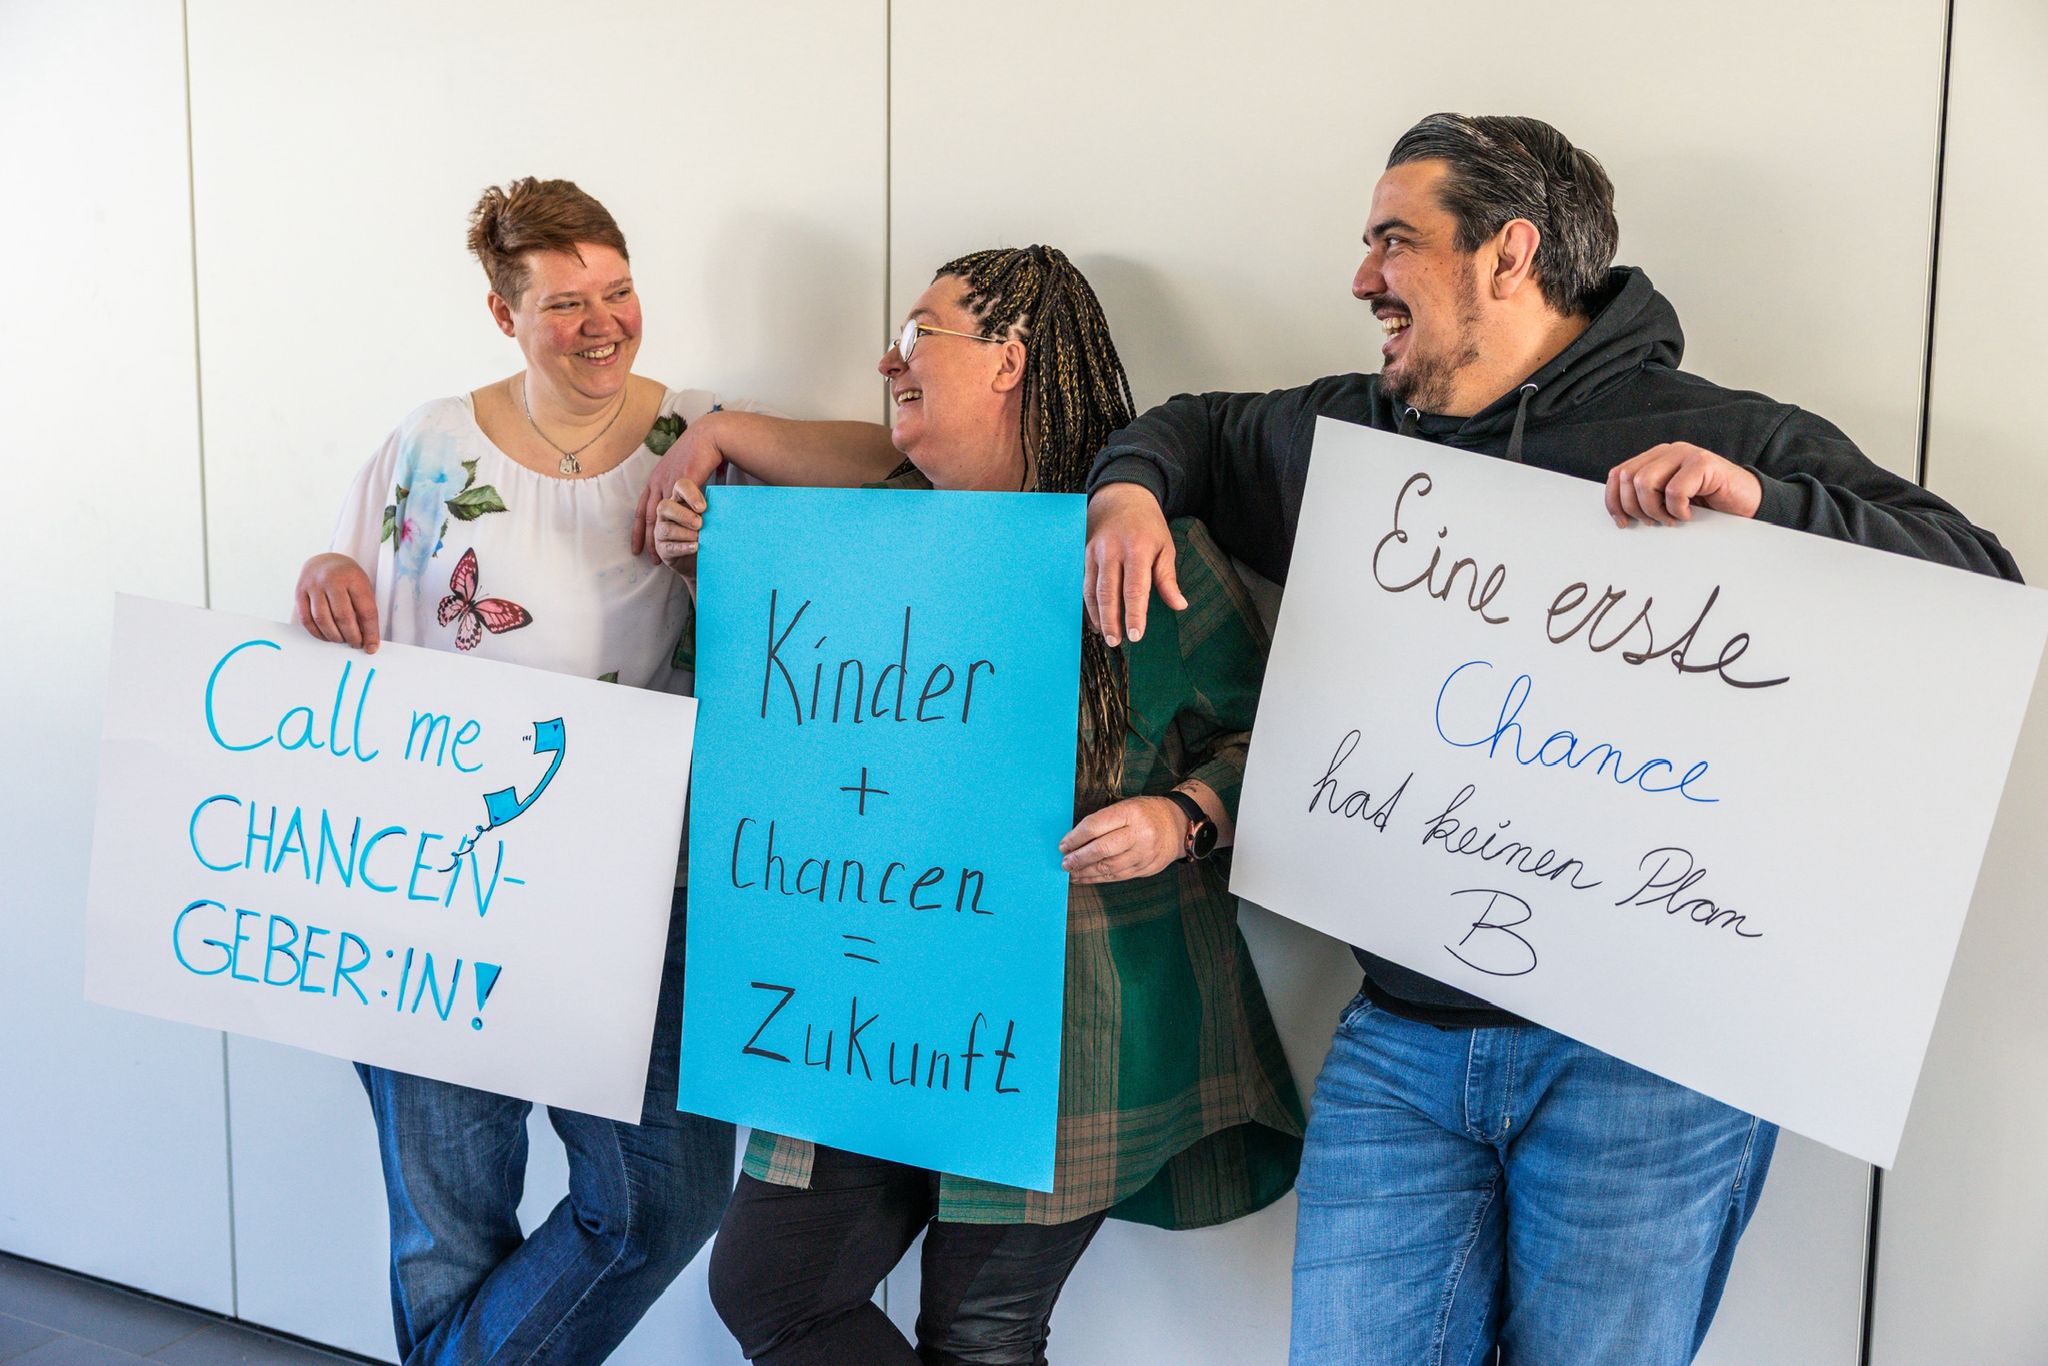 Call me
CHANCEN-
GEBER:IN!
Kinder
+
Chancen
=
Zukunft
Eine erste
Chance
hat keinen Plan
B